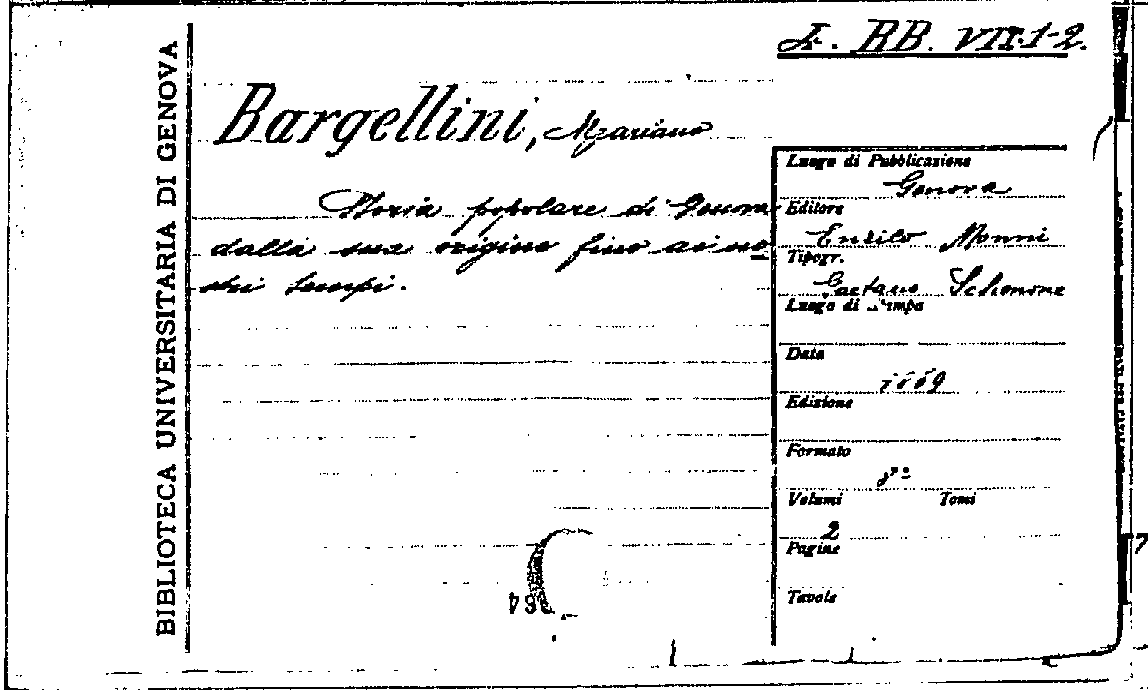 BIBLIOTECA UNIVERSITARIA DI GENOVA
BB. VII.1-2.
Bargellini, Mariano
Storia popolare di Genova
dalla sua origine fino ai no
stri tempi.
Luogo di Pubblicazione
Genova
Editore
Enrico Monni
Tipogr.
Gaetano Schenone
Luogo di Stampa
Data
Edizione
Formato
8º
Volumi Tomi
2
Pagine
Tavole